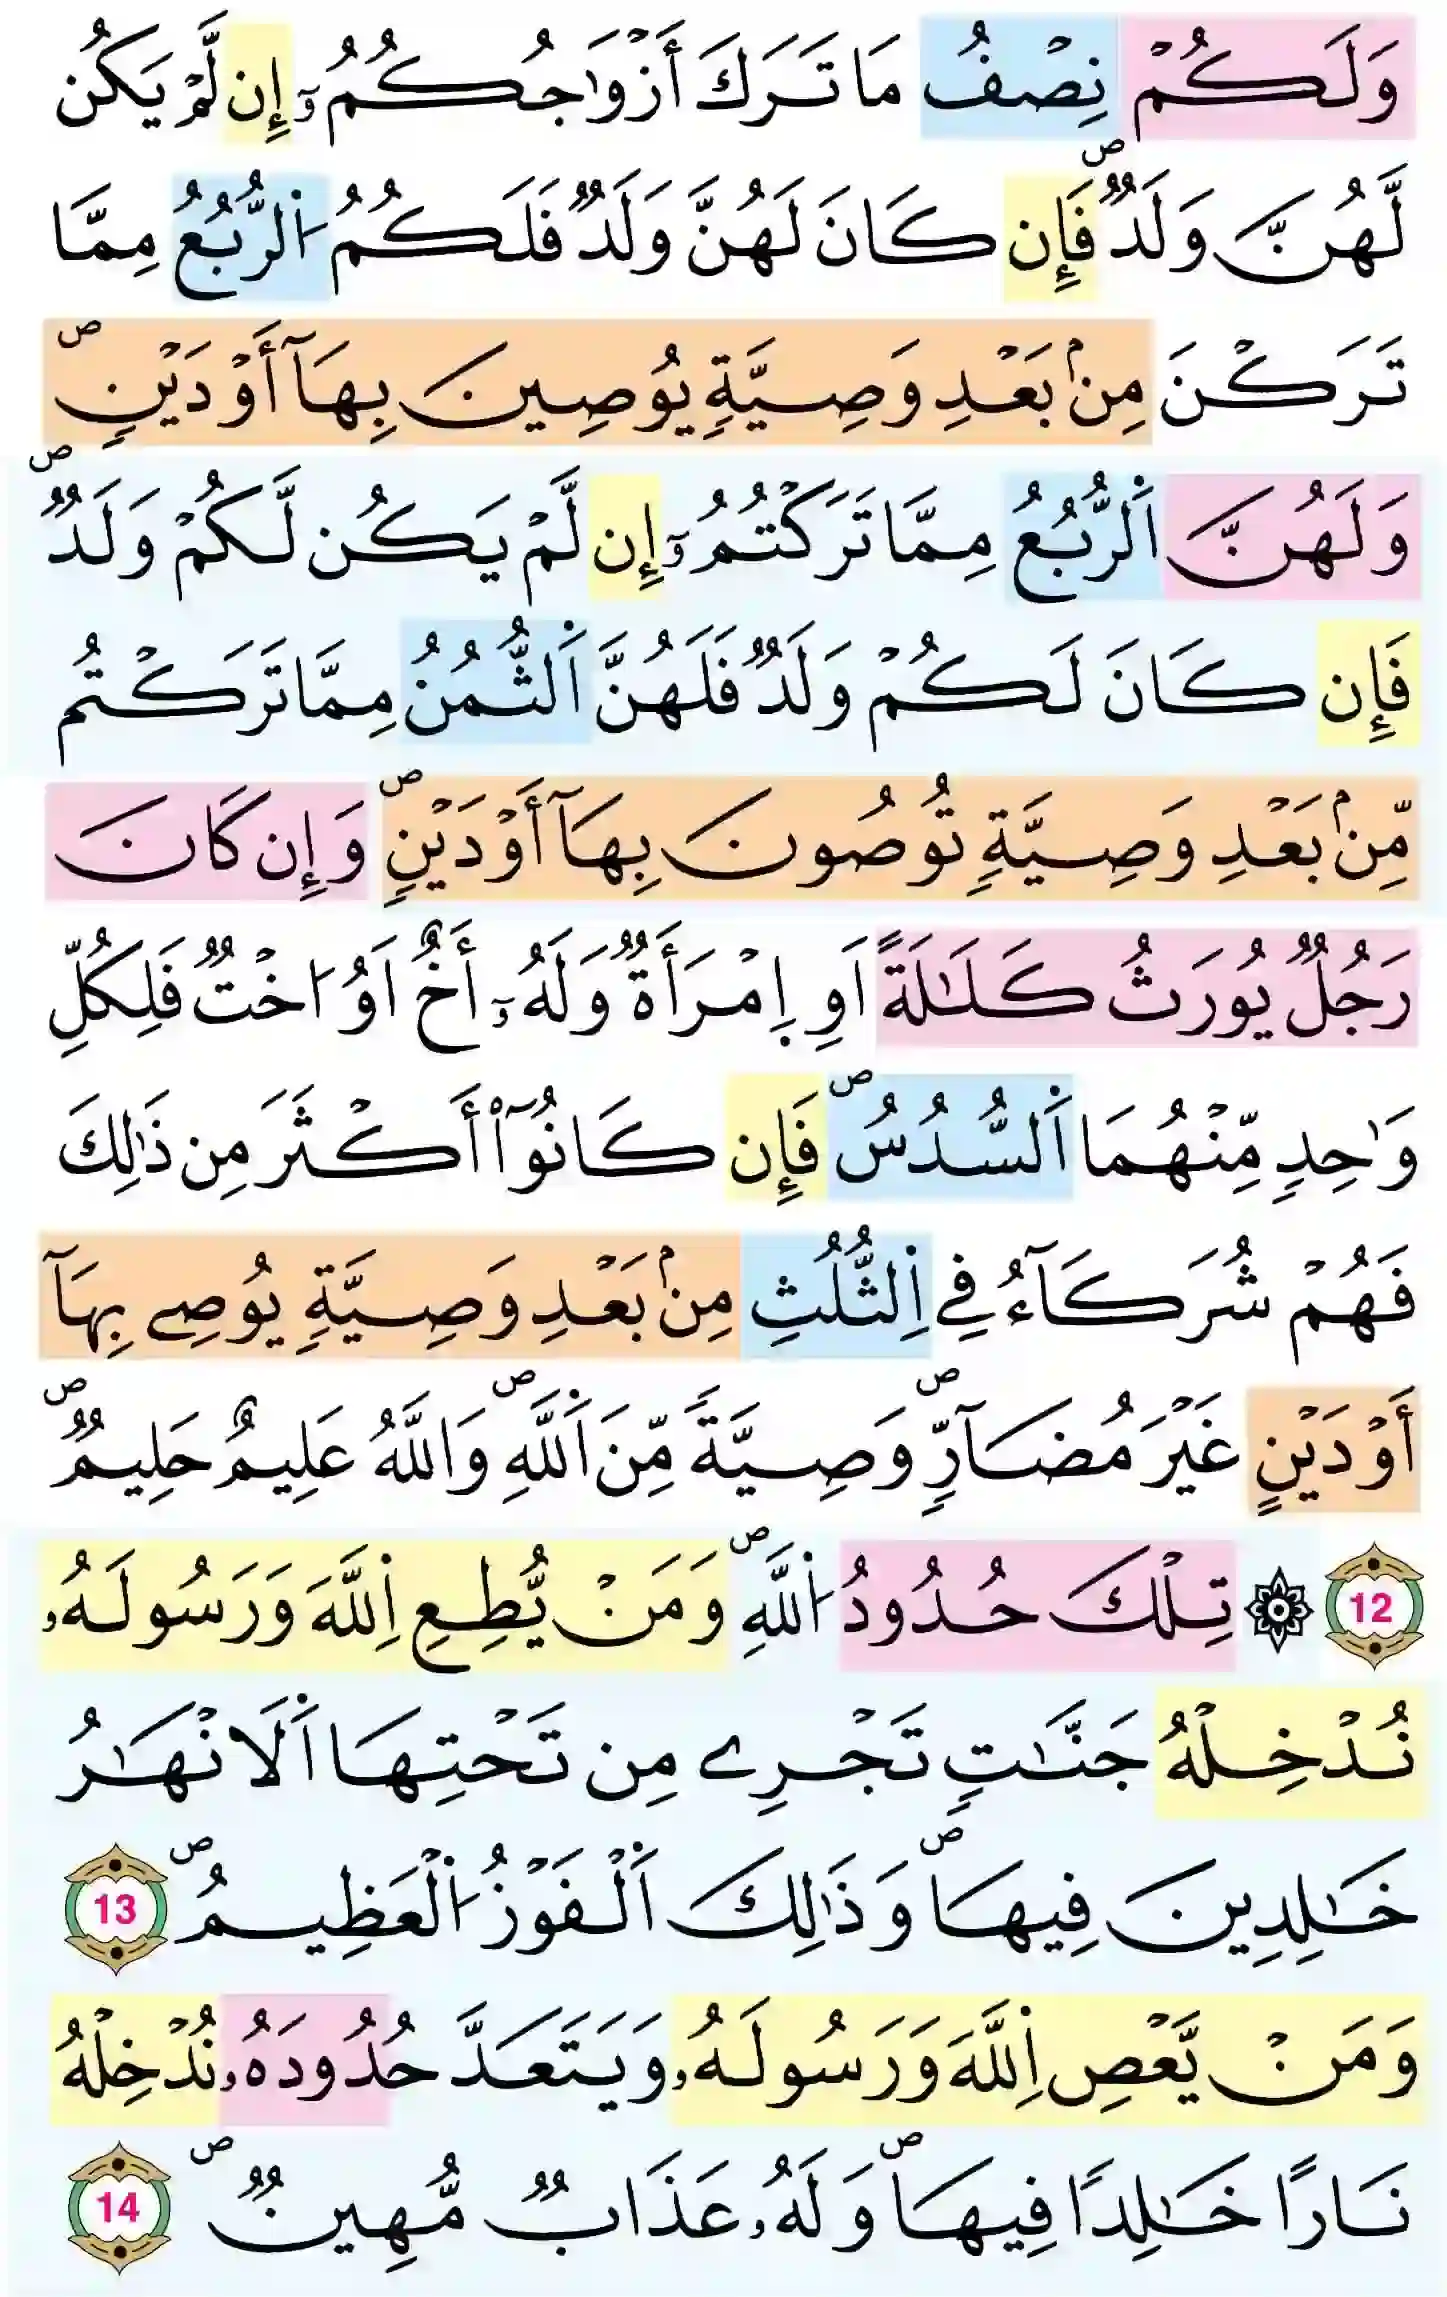 وَلَكُمْ نِصْفُ مَا تَرَكَ أَزْوَٰجُكُمُۥٓ إِن لَّمْ يَكُن
لَّهُنَّ وَلَدٌۖ فَإِن كَانَ لَهُنَّ وَلَدٌ فَلَكُمُ اُ۬لرُّبُعُ مِمَّا
تَرَكْنَ مِنۢ بَعْدِ وَصِيَّةٍ يُوصِينَ بِهَآ أَوْ دَيْنٍۖ
وَلَهُنَّ اَ۬لرُّبُعُ مِمَّا تَرَكْتُمُۥٓ إِن لَّمْ يَكُن لَّكُمْ وَلَدٌۖ
فَإِن كَانَ لَكُمْ وَلَدٌ فَلَهُنَّ اَ۬لثُّمُنُ مِمَّا تَرَكْتُم
مِّنۢ بَعْدِ وَصِيَّةٍ تُوصُونَ بِهَآ أَوْ دَيْنٍۖ وَإِن كَانَ
رَجُلٌ يُورَثُ كَلَٰلَةً اَوِ اِ۪مْرَأَةٌ وَلَهُۥٓ أَخٌ اَوُ ا۟خْتٌ فَلِكُلِّ
وَٰحِدٍ مِّنْهُمَا اَ۬لسُّدُسُۖ فَإِن كَانُوٓاْ أَكْثَرَ مِن ذَٰلِكَ
فَهُمْ شُرَكَآءُ فِے اِ۬لثُّلُثِ مِنۢ بَعْدِ وَصِيَّةٍ يُوصِے بِهَآ
أَوْ دَيْنٍ غَيْرَ مُضَآرٍّۖ وَصِيَّةً مِّنَ اَ۬للَّهِۖ وَاللَّهُ عَلِيمٌ حَلِيمٌۖ
12 ۞ تِلْكَ حُدُودُ اُ۬للَّهِۖ وَمَنْ يُّطِعِ اِ۬للَّهَ وَرَسُولَهُۥ
نُدْخِلْهُ جَنَّٰتٍ تَجْرِے مِن تَحْتِهَا اَ۬لَانْهَٰرُ
خَٰلِدِينَ فِيهَاۖ وَذَٰلِكَ اَ۬لْفَوْزُ اُ۬لْعَظِيمُۖ 13
وَمَنْ يَّعْصِ اِ۬للَّهَ وَرَسُولَهُۥ وَيَتَعَدَّ حُدُودَهُۥ نُدْخِلْهُ
نَارًا خَٰلِدًا فِيهَاۖ وَلَهُۥ عَذَابٌ مُّهِينٌۖ 14